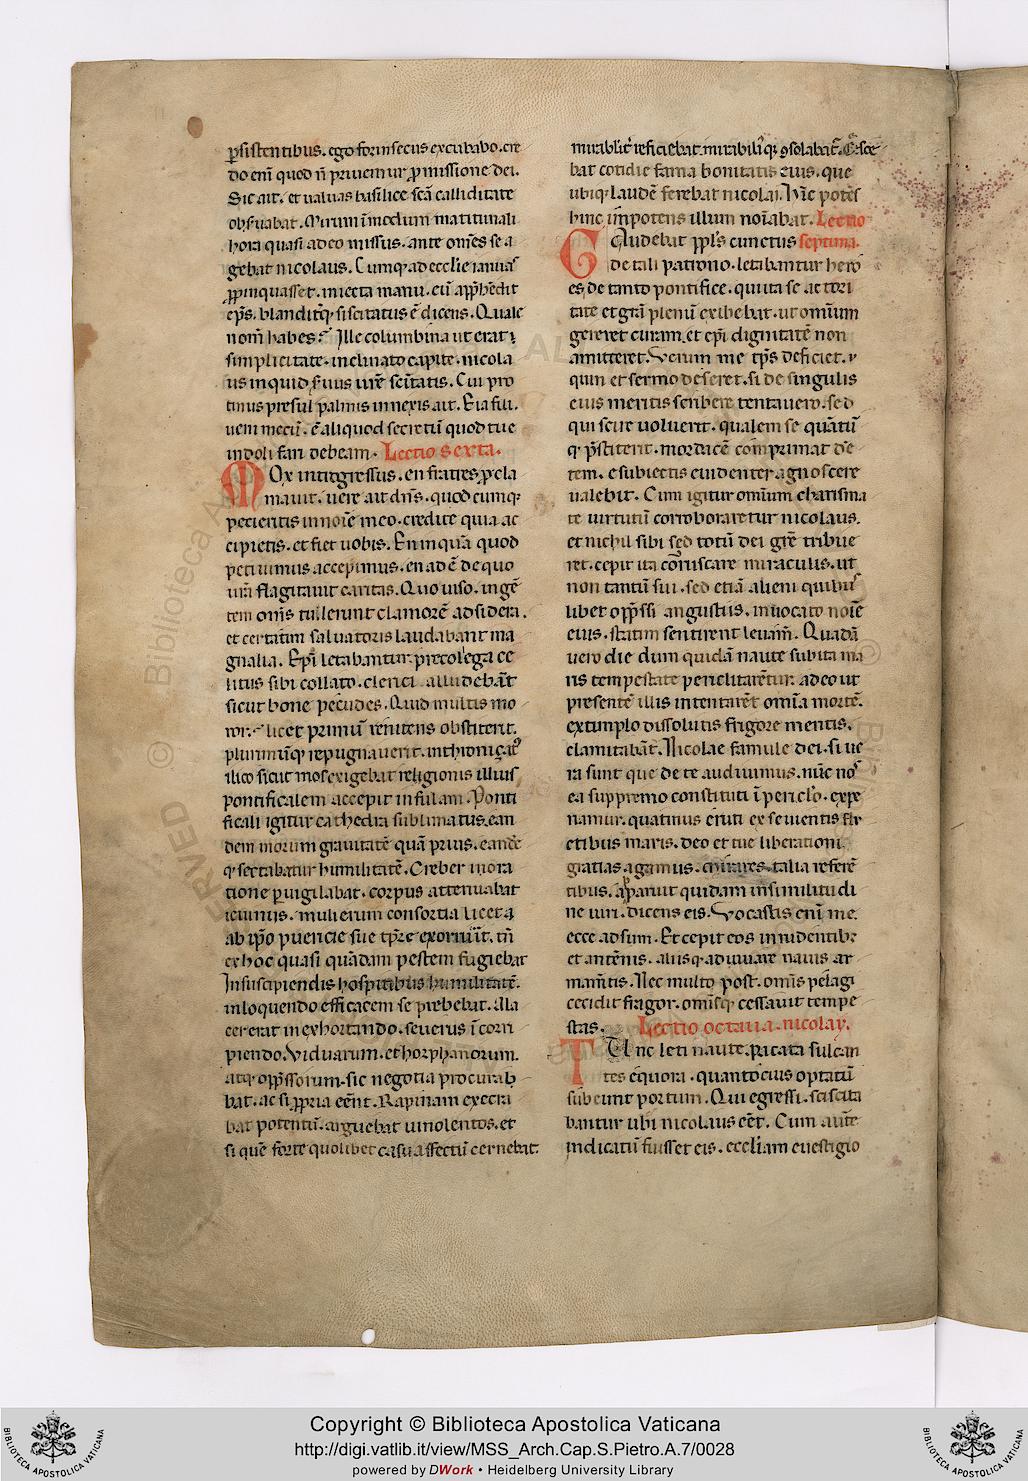 ꝑsistentibus. ego forinsecus excubabo. cre
do eni̅ quod n̅ priuemur ꝓmissione dei.
Sic ait. et ualuas basilice sc̅a calliditate
obseruabat. Mirum i̅modum matitunali
hora quasi a deo missus. ante om̅es se a
gebat nicolaus. Cumq; ad ecclie ianuas
ꝓpinquasset. iniecta manu. eu̅ app̅hendit
ep̅s. blanditq; sciscitatus e̅ dicens. Quale
nom̅ habes? Ille columbina ut erat
simplicitate. inclinato capite. nicola
us inquid seruus ur̅e sc̅itatis. Cui pro
tinus presul palmis innexis ait. Eia fili.
ueni mecu̅. e̅ aliquod secretu̅ quod tue
indoli fari debeam. Lectio sexta.
Mox intregressus. en fratres ꝓcla
mauit. uere ait dn̅s. quodcumq;
pecieritis in noi̅e meo. credite quia ac
cipietis. et fiet uobis. En inqua̅ quod
petiuimus accepimus. en ad e̅ de quo
ur̅a flagitauit caritas. Quo uiso. inge̅
tem om̅s tullerunt clamore̅ ad sidera.
et certatim saluatoris laudabant ma
gnalia. Ep̅i letabantur. pre colega ce
litus sibi collato. clerici alludeba̅t
sicut bone pecudes. Quid multis mo
ror. licet primu̅ renitens obstiterit.
plurimu̅q; repugnauerit. inthronizat᷒
ilico sicut mos exigebat religionis illius
pontificalem accepit infulam. Ponti
ficali igitur cathedra sublimatus. ean
dem morum grauitate̅ qua̅ prius. eande̅
q; sectabatur humilitate̅. Creber in ora
tione ꝑuigilabat. corpus attenuabat
ieiuniis. mulierum consortia licet
ab ip̅o puericie sue tp̅re exorruit. tn̅
ex hoc quasi qua̅dam pestem fugiebat
In suscipiendis hospitibus humilitate̅.
in loquendo efficacem se prebebat. Ala
cer erat in exhortando. seuerus i̅ corri
piendo. Viduarum. et horphanorum.
atq; opp̅ssorum. sic negotia procurab
bat. ac si ꝓpria ee̅nt. Rapinam execra
bat potentu̅. arguebat uinolentos. et
si que̅ forte quolibet casu affectu̅ cernebat.
mirabilit̅ reficiebat. mirabiliq; ꝯsolabat̅. Cresce
bat cotidie fama bonitatis eius. que
ubiq; laude̅ ferebat nicolai. Hu̅c pote̅s
hinc impotens illum noi̅abat. Lectio
Gaudebat ppl̅s cunctus septima.
de tali patrono. letabantur hero
es de tanto pontifice. qui ita se actori
tate et gra̅ plenu̅ exibebat. ut omnium
gereret curam. et ep̅i dignitate̅ non
amitteret. Verum me tp̅s deficiet.
quin et sermo deseret. si de singulis
eius meritis scribere tentauero. sed
qui scire uoluerit. qualem se quantu̅
q; p̅stiterit. mordace̅ comprimat de̅
tem. e subiectis euidenter agnoscere
ualebit. Cum igitur omnium charisma
te uirtutu̅ corroboraretur nicolaus.
et nichil sibi sed totu̅ dei gr̅e tribue
ret. cepit ita coruscare miraculis. ut
non tantu̅ sui. sed etia̅ alieni quibus
libet opp̅ssi angustiis. inuocato noi̅e
eius. statim sentirent leuam̅. Quada̅
uero die dum quida̅ naute subita ma
ris tempestate periclitare̅tur. adeo ut
presente̅ illis intentare̅t omnia morte̅.
extimplo dissolutis frigore mentis.
clamitaba̅t. Nicolae famule dei. si ue
ra sunt que de te audiuimus. nu̅c nos
ea suppremo constituti i̅ periclo. expe
riamur. quatinus eruti ex seuientis flu
ctibus maris. deo et tue liberationi
gratias agamus. talia refere̅
tibus. apparuit quidam in similitudi
ne uiri. dicens eis. Vocastis eni̅ me.
ecce adsum. Et cepit eos in rudentib;
et ante̅nis. aliisq; adiuuare nauis ar
mam̅tis. Nec multo post. om̅is pelagi
cecidit fragor. om̅isq; cessauit tempe
stas. Lectio octaua. nicolay.
Tunc leti naute. pacata sulcan
tes equora. quantocius optatu̅
subeunt portum. Qui egressi. sciscita
bantur ubi nicolaus ee̅t. Cum aute̅
indicatu̅ fuisset eis. eccl̅iam euestigio
Copyright © Biblioteca Apostolica Vaticana
http://digi.vatlib.it/view/MSS_Arch.Cap.S.Pietro.A.7/0028
powered by DWork • Heidelberg University Library